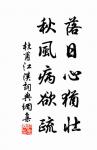 落日心猶壯
秋風病欲疏
杜甫江漢詞典網集